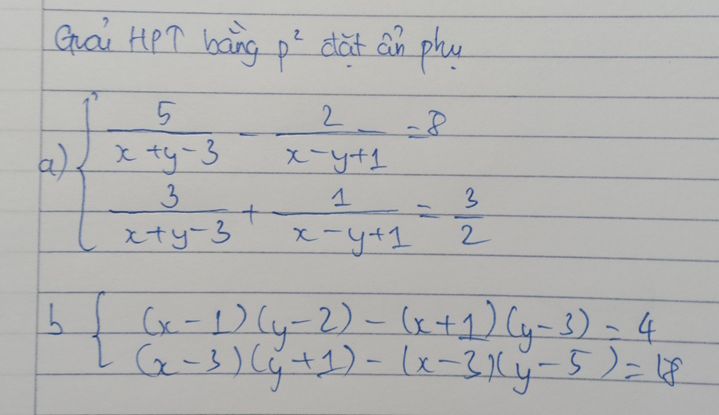 Giải HPT bằng p² đặt ẩn phụ
a) { 5/(x+y-3) - 2/(x-y+1) = 8
3/(x+y-3) + 1/(x-y+1) = 3/2
b { (x-1)(y-2) - (x+1)(y-3) = 4
(x-3)(y+1) - (x-3)(y-5) = 18